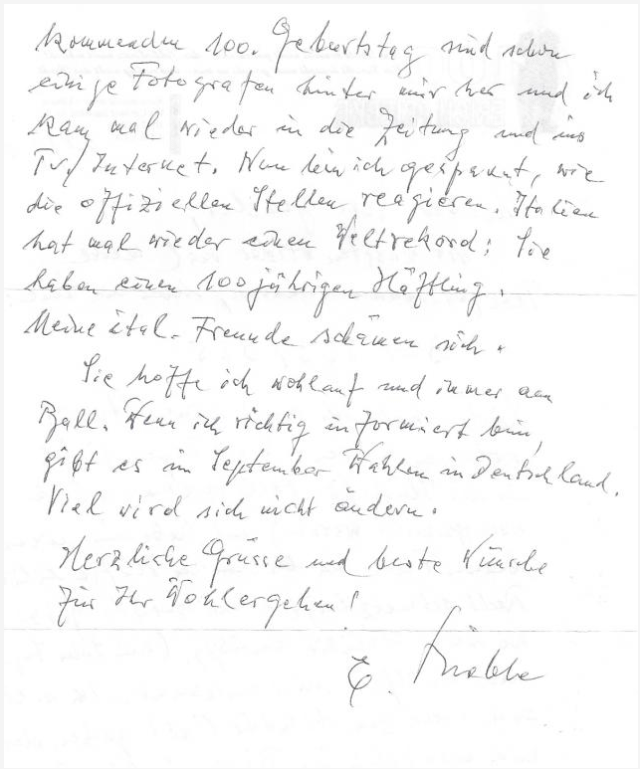 kommenden 100. Geburtstag sind schon
einige Fotografen hinter mir her und ich
kam mal wieder in die Zeitung und ins
TV/Internet. Nun bin ich gespannt, wie
die offiziellen Stellen reagieren. Italien
hat mal wieder einen Weltrekord: Sie
haben einen 100jährigen Häftling.
Meine ital. Freunde schämen sich.
Sie hoffe ich wohlauf und immer am
Ball. Wenn ich richtig informiert bin,
gibt es im September Wahlen in Deutschland.
Viel wird sich nicht ändern.
Herzliche Grüsse und beste Wünsche
für Ihr Wohlergehen!
E.